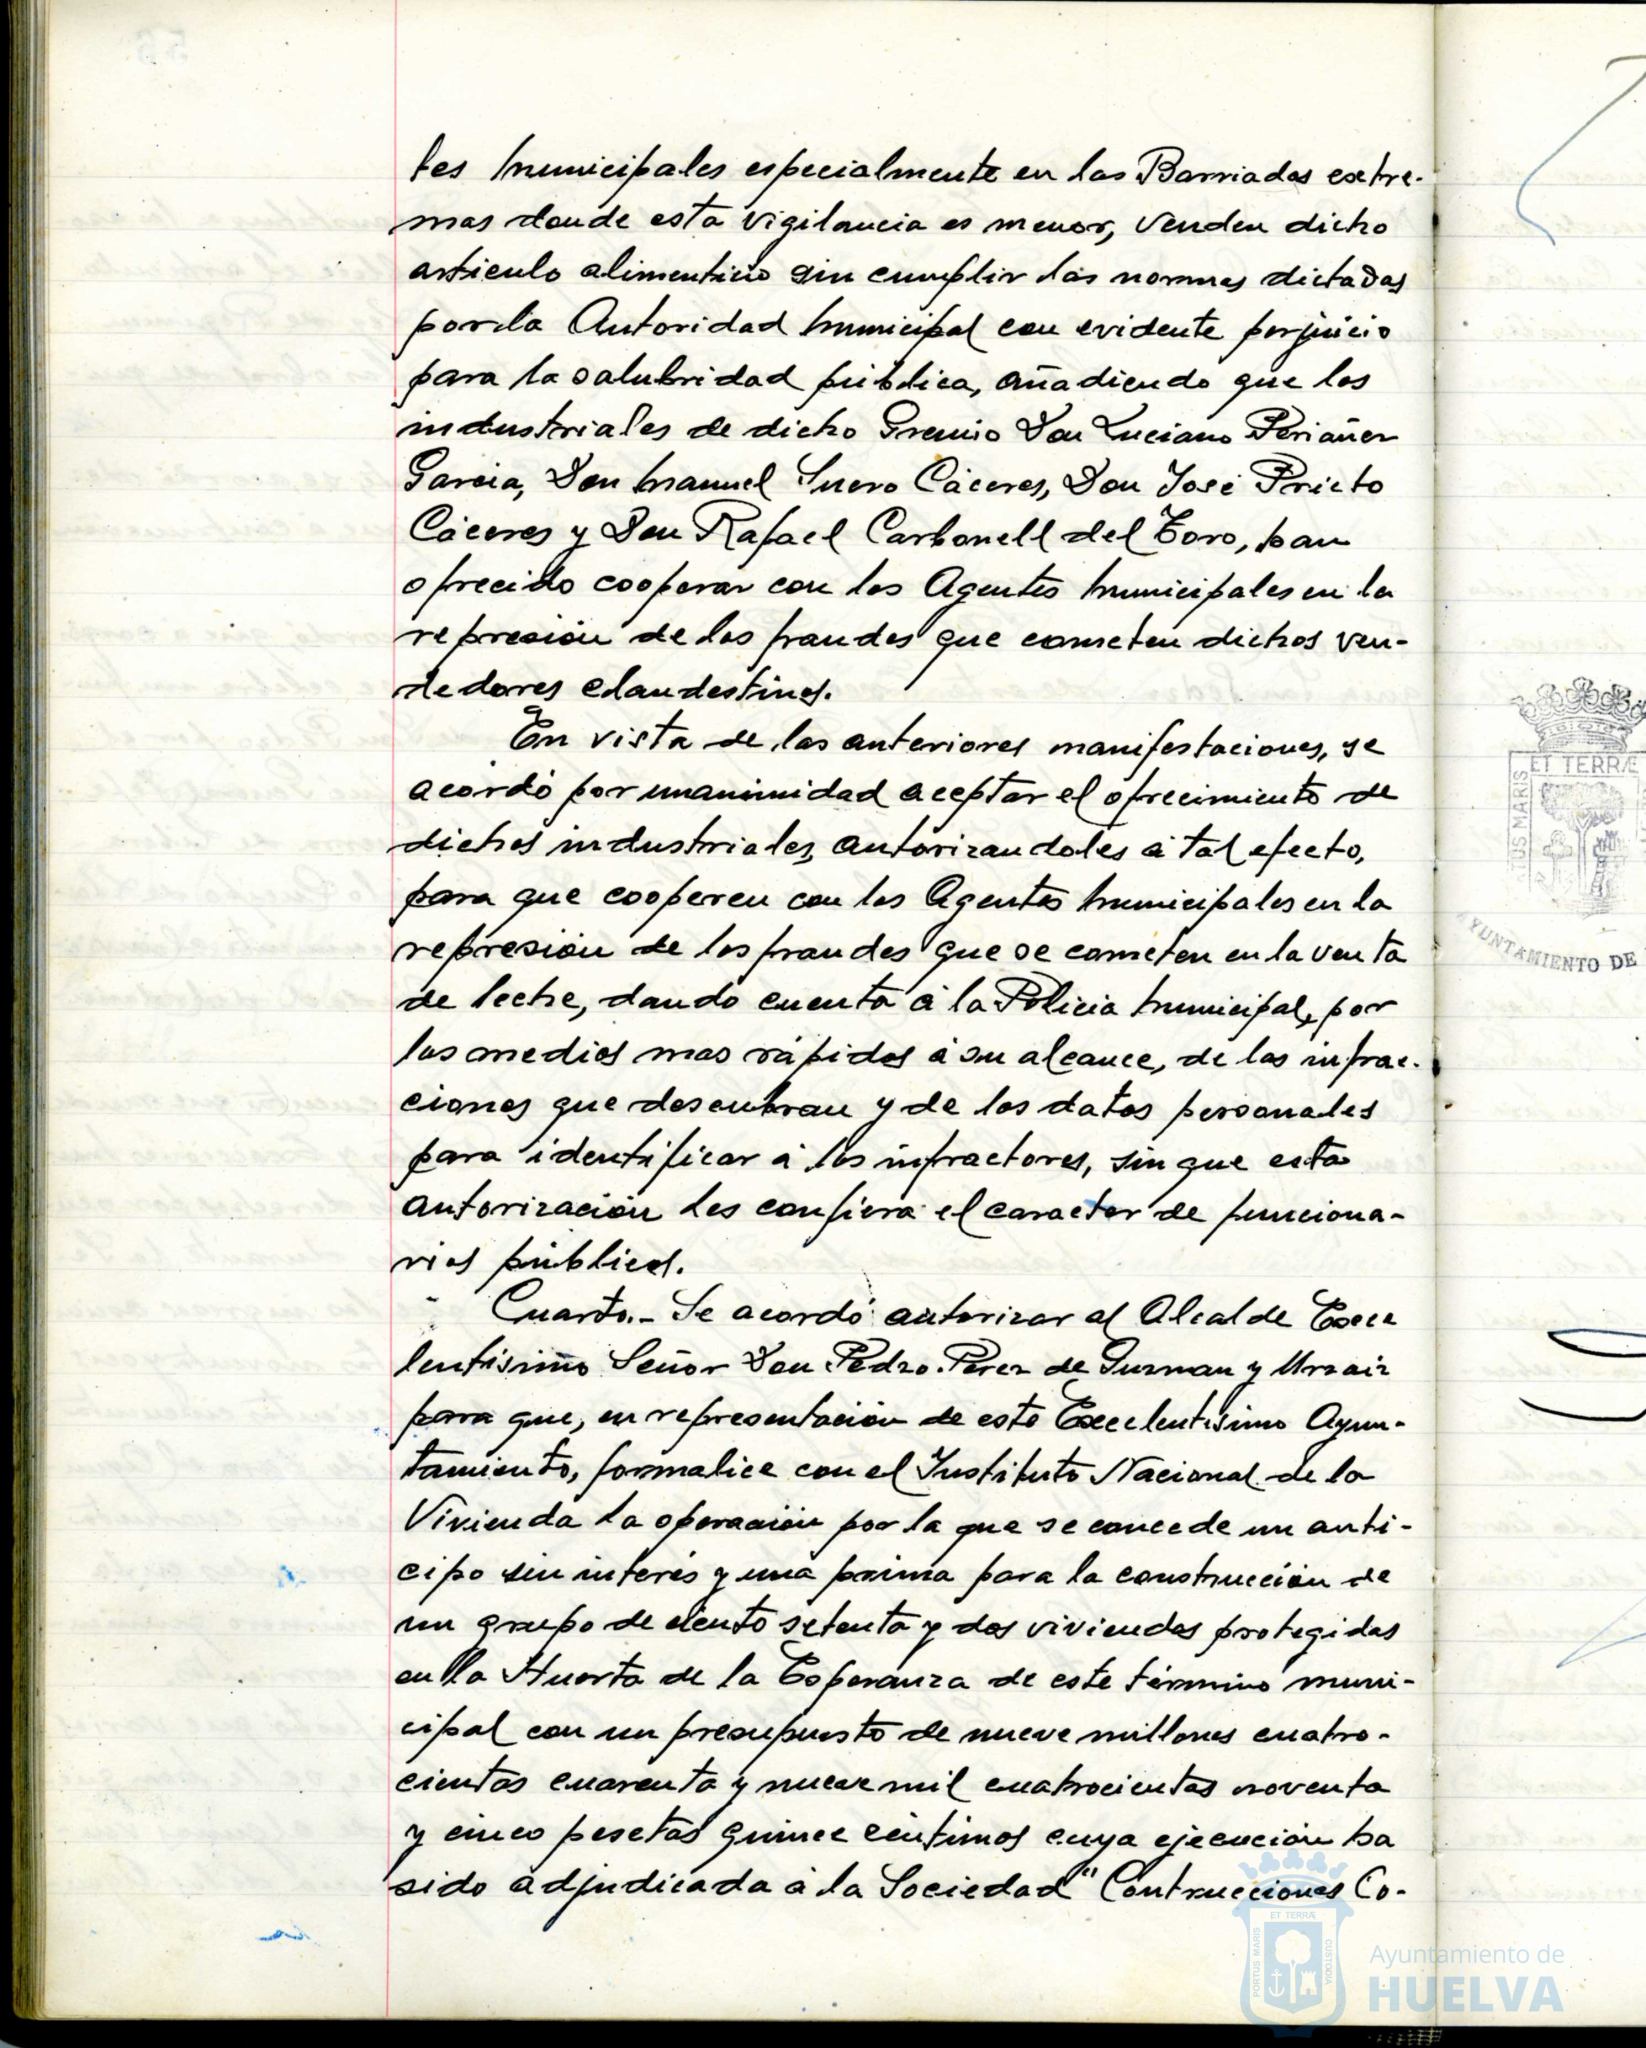 tes Municipales especialmente en las Barriadas extre-
mas donde esta vigilancia es menor, venden dicho
articulo alimenticio sin cumplir las normas dictadas
por la Autoridad Municipal con evidente perjuicio
para la salubridad pública, añadiendo que los
industriales de dicho Gremio Don Luciano Periañez
Garcia, Don Manuel Suero Cáceres, Don José Prieto
Cáceres y Don Rafael Carbonell del Toro, han
ofrecido cooperar con los Agentes Municipales en la
represión de los fraudes que cometen dichos ven-
dedores clandestinos.
En vista de las anteriores manifestaciones, se
acordó por unanimidad aceptar el ofrecimiento de
dichos industriales, autorizandoles á tal efecto,
para que cooperen con los Agentes Municipales en la
represión de los fraudes que se cometen en la venta
de leche, dando cuenta á la Policia Municipal, por
los medios mas rápidos á su alcance, de las infrac-
ciones que descubran y de los datos personales
para identificar á los infractores, sin que esta
autorización les confiera el caracter de funciona-
rios públicos.
Cuarto.- Se acordó autorizar al Alcalde Exce
lentisimo Señor Don Pedro Perez de Guzman y Urzaiz
para que, en representación de este Excelentisimo Ayun-
tamiento, formalice con el Instituto Nacional de la
Vivienda la operación por la que se concede un anti-
cipo sin interés y una prima para la construcción de
un grupo de ciento setenta y dos viviendas protegidas
en la Huerta de la Esperanza de este término muni-
cipal con un presupuesto de nueve millones cuatro-
cientas cuarenta y nueve mil cuatrocientas noventa
y cinco pesetas quince céntimos cuya ejecución ha
sido adjudicada á la Sociedad "Contrucciones Co-
ET TERRÆ
TUS MARIS
AYUNTAMIENTO DE
ET TERRÆ
PORTUS MARIS
CUSTODIA
Ayuntamiento de
HUELVA